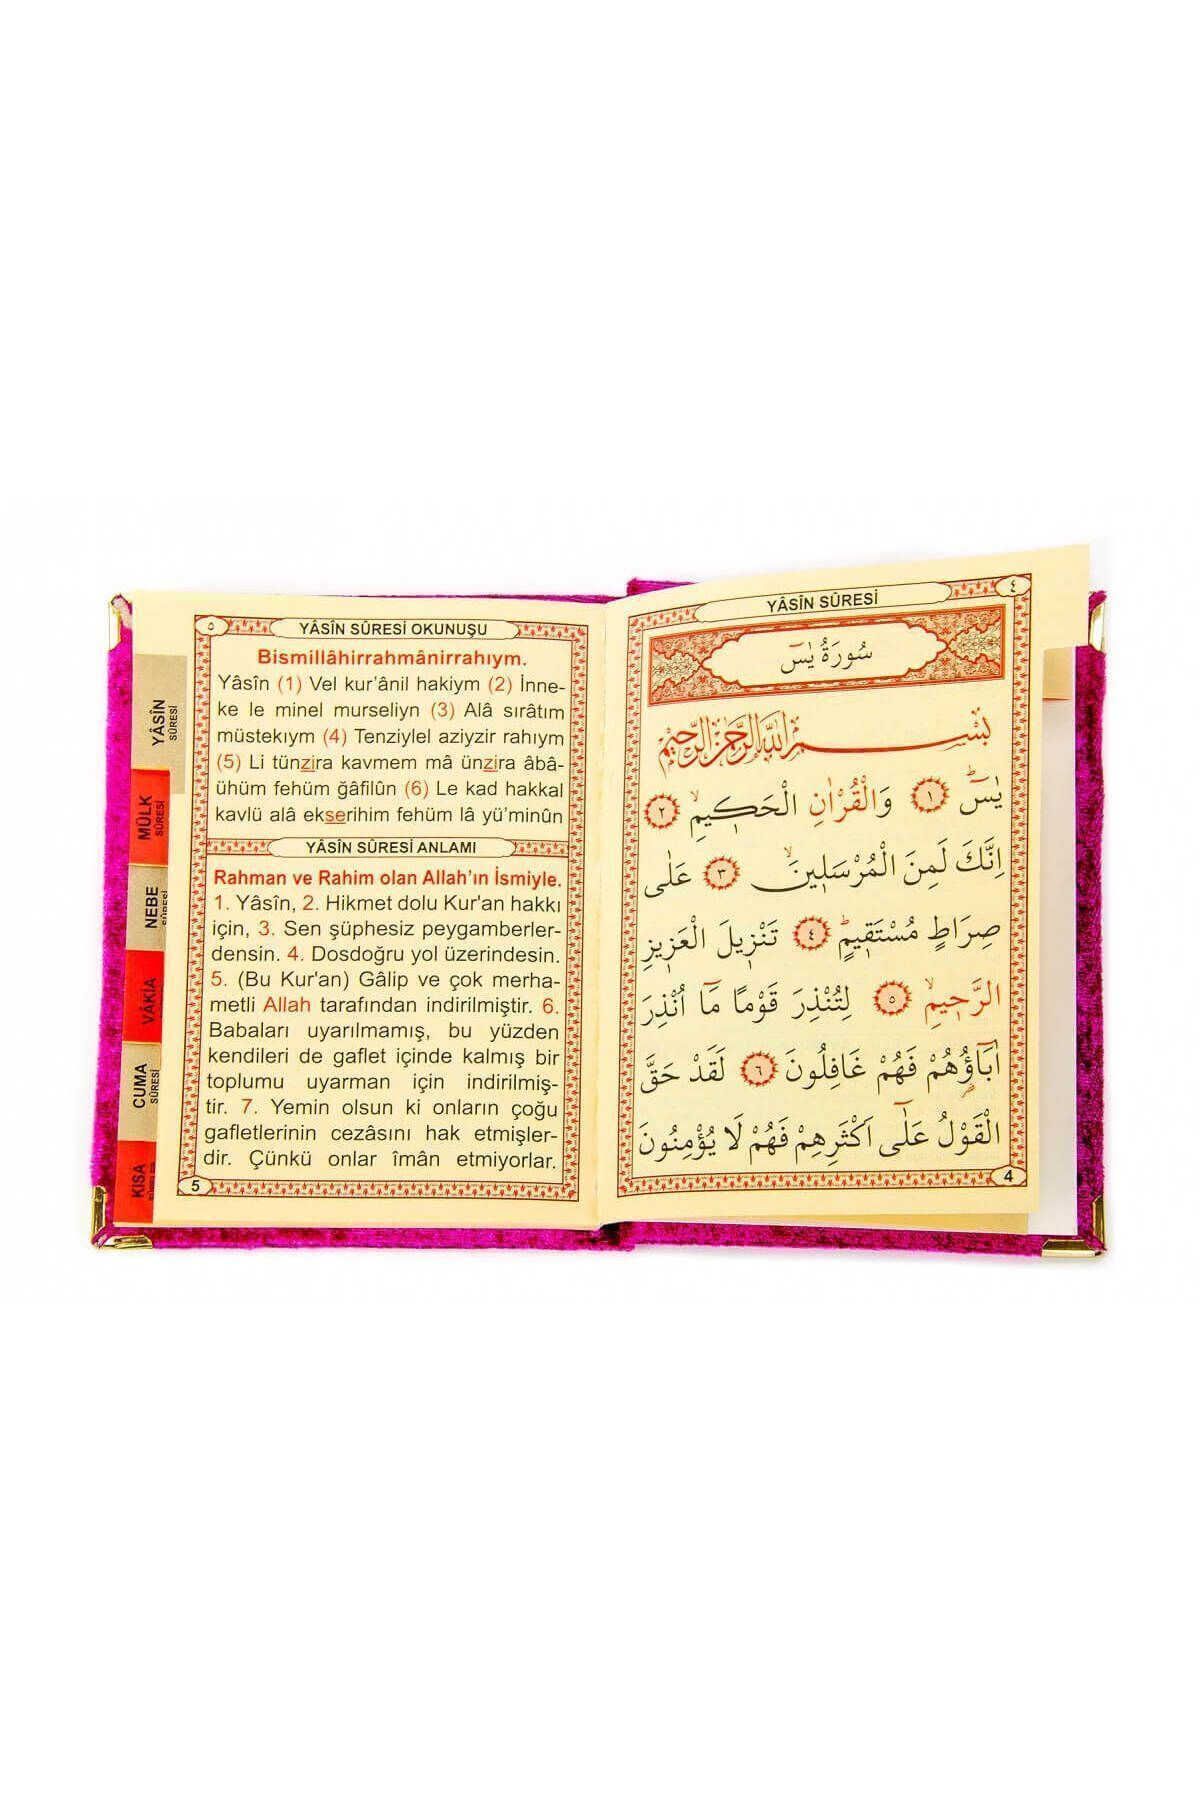 ٤
YÂSÎN SÛRESİ
سُورَةُ يٰسٓ
بِسْمِ اللّٰهِ الرَّحْمٰنِ الرَّحِيمِ
يٰسٓ ١ وَالْقُرْاٰنِ الْحَكٖيمِۙ ٢
اِنَّكَ لَمِنَ الْمُرْسَلٖينَۙ ٣ عَلٰى
صِرَاطٍ مُسْتَقٖيمٍؕ ٤ تَنْزٖيلَ الْعَزٖيزِ
الرَّحٖيمِۙ ٥ لِتُنْذِرَ قَوْمًا مَٓا اُنْذِرَ
اٰبَٓاؤُهُمْ فَهُمْ غَافِلُونَ ٦ لَقَدْ حَقَّ
الْقَوْلُ عَلٰٓى اَكْثَرِهِمْ فَهُمْ لَا يُؤْمِنُونَ
4
٥
YÂSÎN SÛRESİ OKUNUŞU
Bismillâhirrahmânirrahıym.
Yâsîn (1) Vel kur'ânil hakiym (2) İnne-
ke le minel murseliyn (3) Alâ sırâtım
müstekıym (4) Tenziylel aziyzir rahıym
(5) Li tünzira kavmem mâ ünzira âbâ-
ühüm fehüm ğâfilûn (6) Le kad hakkal
kavlü alâ ekserihim fehüm lâ yü'minûn
YÂSÎN SÛRESİ ANLAMI
Rahman ve Rahim olan Allah'ın İsmiyle.
1. Yâsîn, 2. Hikmet dolu Kur'an hakkı
için, 3. Sen şüphesiz peygamberler-
densin. 4. Dosdoğru yol üzerindesin.
5. (Bu Kur'an) Gâlip ve çok merha-
metli Allah tarafından indirilmiştir. 6.
Babaları uyarılmamış, bu yüzden
kendileri de gaflet içinde kalmış bir
toplumu uyarman için indirilmiş-
tir. 7. Yemin olsun ki onların çoğu
gafletlerinin cezâsını hak etmişler-
dir. Çünkü onlar îmân etmiyorlar.
5
YÂSÎN
SÛRESİ
MÜLK
SÛRESİ
NEBE
SÛRESİ
VÂKİA
CUMA
SÛRESİ
KISA